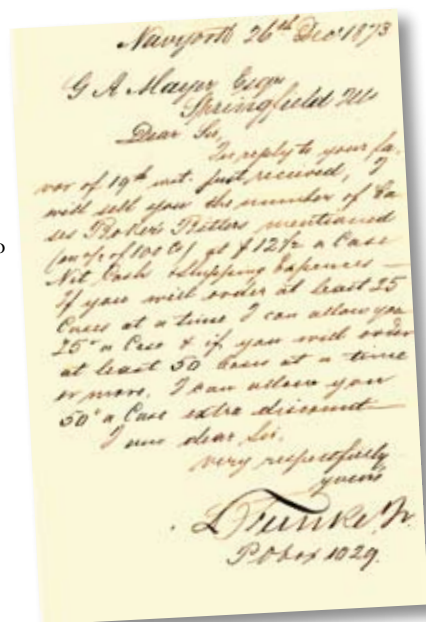 Newyork 26th Dec 1873
G A Mayer Esqr
Springfield Ills
Dear Sir,
In reply to your fa-
vor of 19th inst. just received, I
will sell you the number of Ca-
ses Boker's Bitters mentioned
(on % of 100 Cs) at $12½ a Case
Net Cash Shipping Expences —
If you will order at least 25
Cases at a time I can allow you
25c a Case & if you will order
at least 50 Cases at a time
or more, I can allow you
50c a Case extra discount —
I am dear Sir,
very respectfully
yours
L Funke Jr.
P.O box 1029.
o